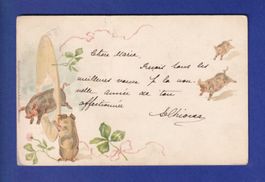 Chère Marie,
Reçois tous les
meilleurs vœux p. la nou-
velle année de ton
affectionnée